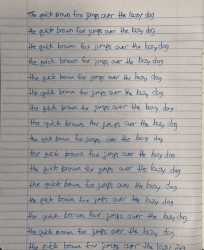 The quick brown fox jumps over the lazy dog
the quick brown fox jumps over the lazy dog
the quick brown fox jumps over the lazy dog
the quick brown fox jumps over the lazy dog
the quick brown fox jumps over the lazy dog
the quick brown fox jumps over the lazy dog
the quick brown fox jumps over the lazy dog
the quick brown fox jumps over the lazy dog
the quick brown fox jumps over the lazy dog
the quick brown fox jumps over the lazy dog
the quick brown fox jumps over the lazy dog
the quick brown fox jumps over the lazy dog
the quick brown fox jumps over the lazy dog
the quick brown fox jumps over the lazy dog
the quick brown fox jumps over the lazy dog
the quick brown fox jumps over the lazy dog